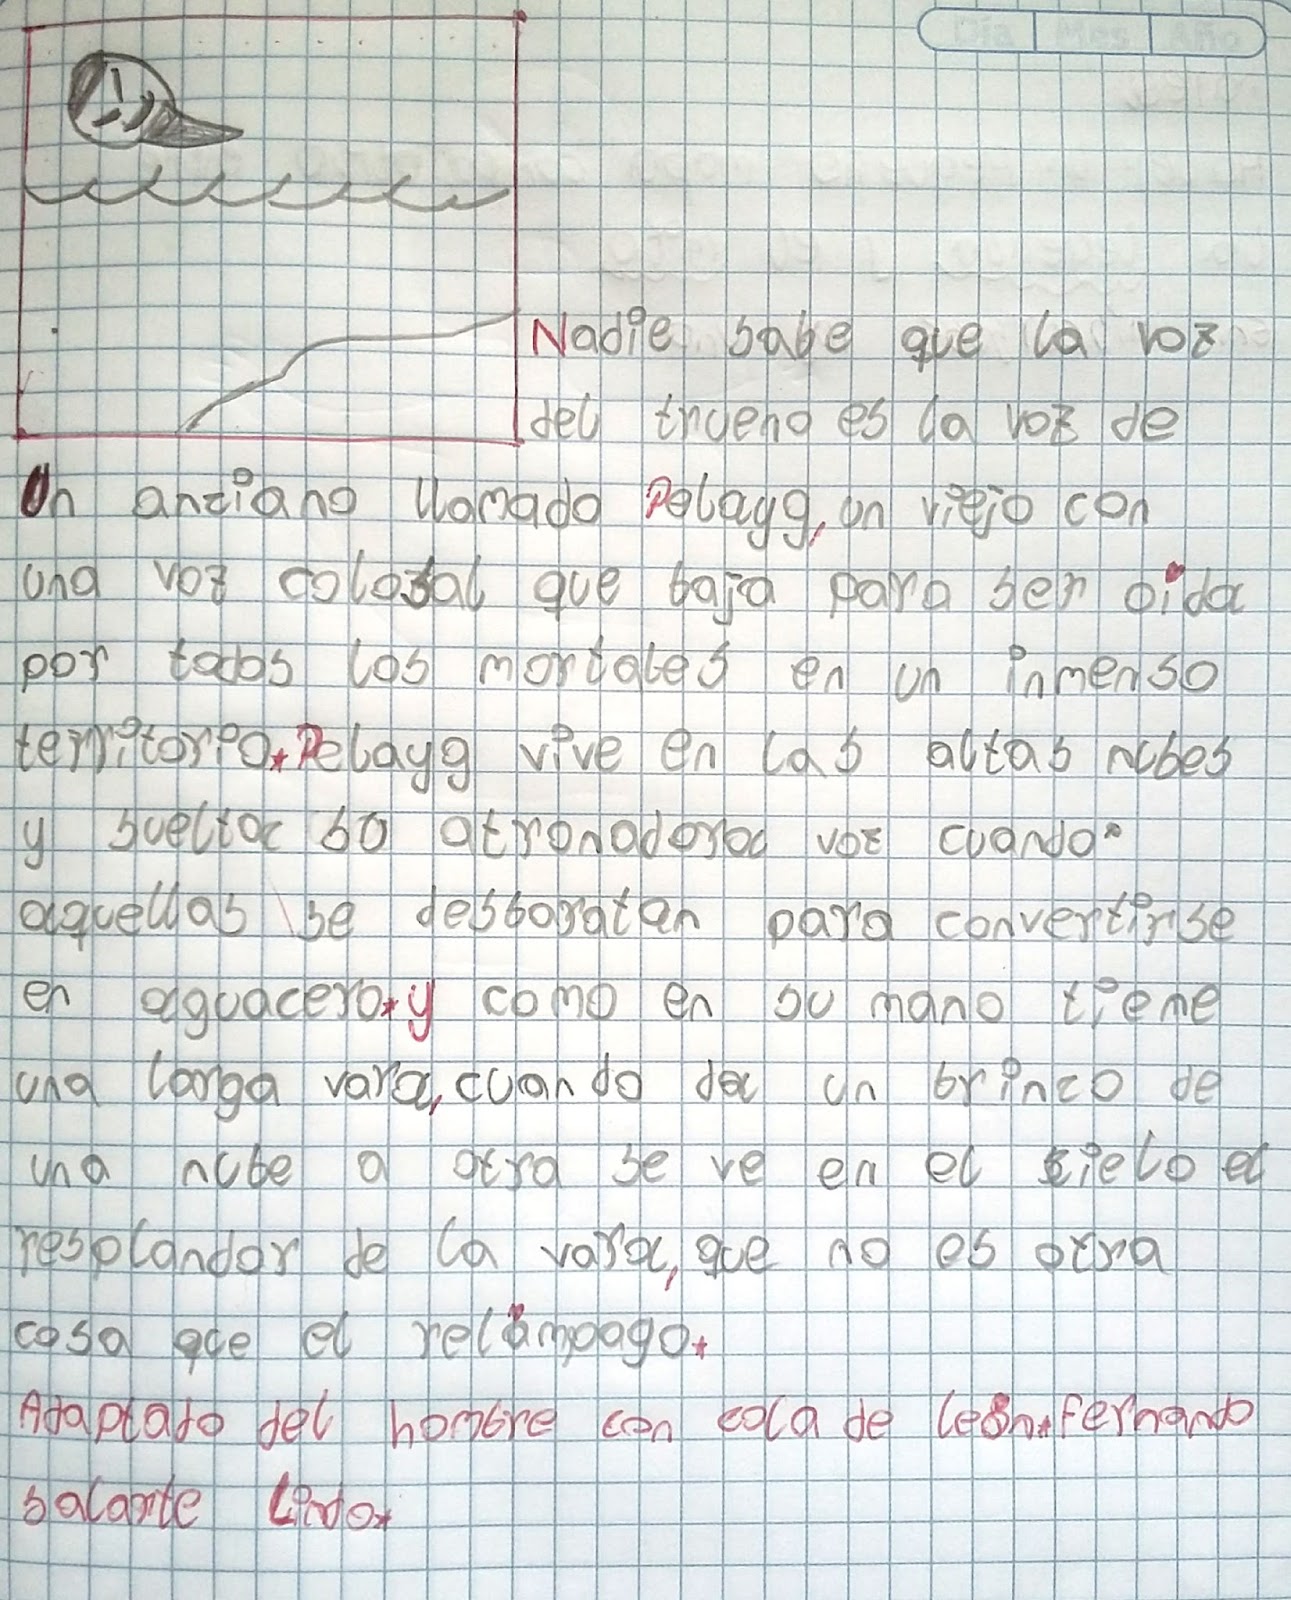 Día Mes Año
Nadie sabe que la voz
del trueno es la voz de
Un anziano llamado Pelayg, un viejo con
una voz colosal que baja para ser oída
por todos los mortales en un inmenso
territorio. Pelayg vive en las altas nubes
y suelta su atronadora voz cuando
aquellas se desbaratan para convertirse
en aguacero. y como en su mano tiene
una larga vara, cuando da un brinco de
una nube a otra se ve en el sielo el
resplandor de la vara, que no es otra
cosa que el relámpago.
Adaptado del hombre con cola de león. Fernando
salarte Lindo.